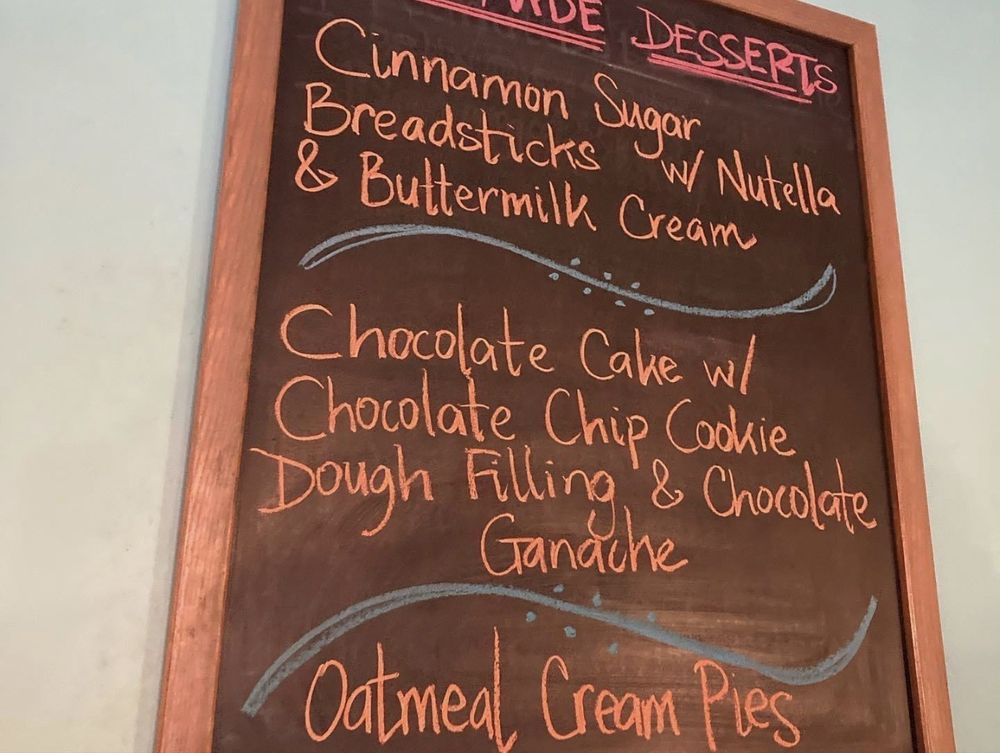 DESSERTS
Cinnamon Sugar
Breadsticks w/ Nutella
& Buttermilk Cream
Chocolate Cake w/
Chocolate Chip Cookie
Dough Filling & Chocolate
Ganache
Oatmeal Cream Pies